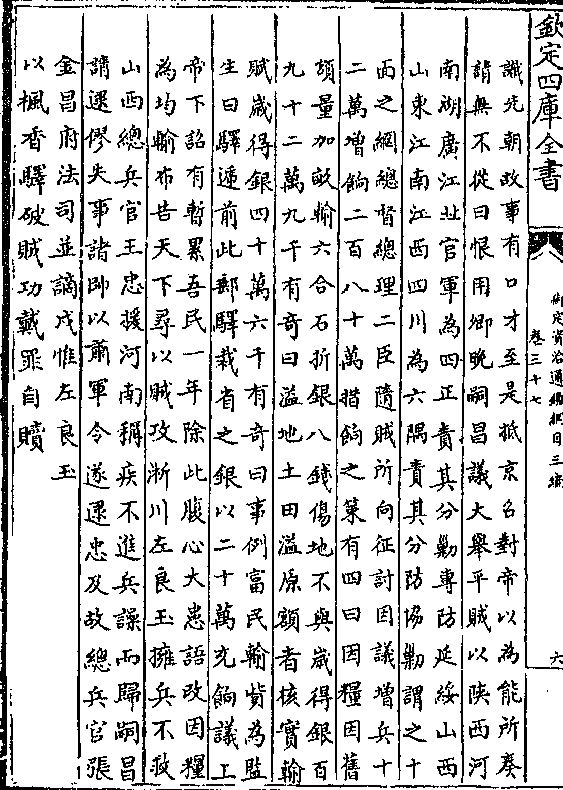 欽定四庫全書
御定資治通鑑綱目三編
卷三十七
六
識先朝故事有口才至是抵京召對帝以為能所奏
請無不從曰恨用卿晚嗣昌議大舉平賊以陝西河
南湖廣江北官軍為四正責其分勦專防延綏山西
山東江南江西四川為六隅責其分防協勦謂之十
面之網總督總理二臣隨賊所向征討因議增兵十
二萬增餉二百八十萬措餉之策有四曰因糧因舊
額量加畝輸六合石折銀八錢傷地不與歲得銀百
九十二萬九千有奇曰溢地土田溢原額者核實輸
賦歲得銀四十萬六千有奇曰事例富民輸貲為監
生曰驛遞前此郵驛裁省之銀以二十萬充餉議上
帝下詔有暫累吾民一年除此腹心大患語改因糧
為均輸布告天下尋以賊攻淅川左良玉擁兵不救
山西總兵官王忠援河南稱疾不進兵譟而歸嗣昌
請逮僇失事諸帥以肅軍令遂逮忠及故總兵官張
金昌府法司並謫戍惟左良玉
以楓香驛破賊功戴罪自贖